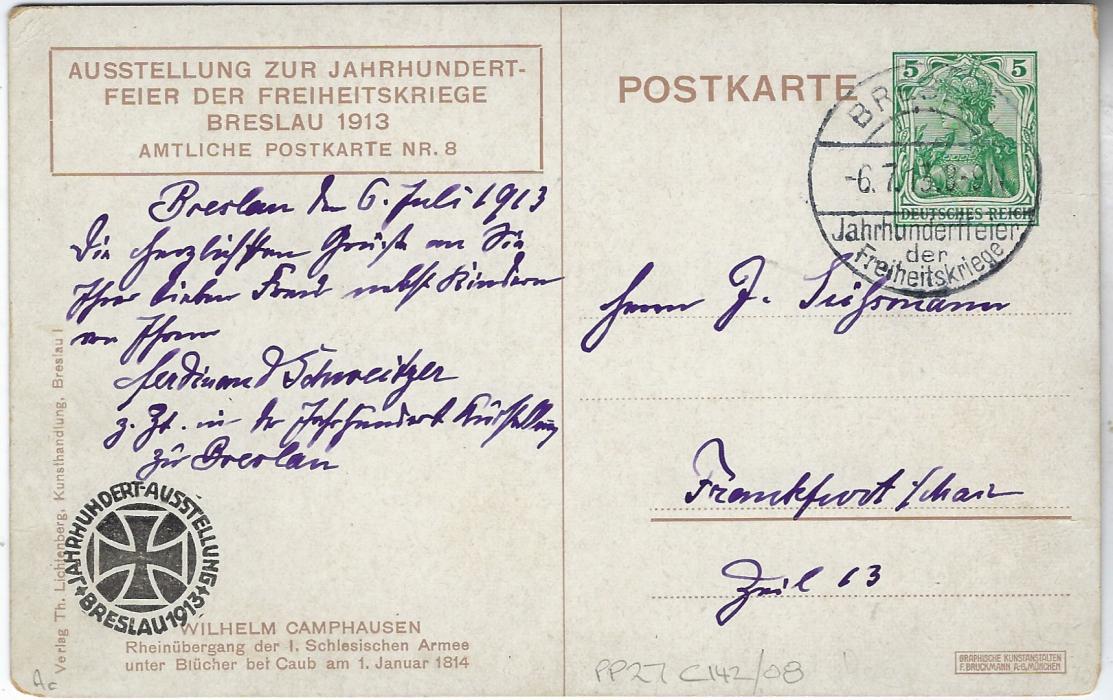 AUSSTELLUNG ZUR JAHRHUNDERT-
FEIER DER FREIHEITSKRIEGE
BRESLAU 1913
AMTLICHE POSTKARTE NR. 8
Breslau den 6. Juli 1913
Die herzlichsten Grüße an Sie
Ihrer lieben Frau nebst Kindern
von Ihrem
Ferdinand Schweitzer
z. Zt. in der Jahrhundert Ausstellung
zu Breslau
JAHRHUNDERT-AUSSTELLUNG
BRESLAU 1913
Verlag Th. Lichtenberg, Kunsthandlung, Breslau I
WILHELM CAMPHAUSEN
Rheinübergang der I. Schlesischen Armee
unter Blücher bei Caub am 1. Januar 1814
POSTKARTE
5 5
DEUTSCHES REICH
BRESLAU
-6.7.13.8-9
Jahrhundertfeier
der
Freiheitskriege
Herrn J. Süßmann
Frankfurt /Main
Zeil 13
GRAPHISCHE KUNSTANSTALTEN
F. BRUCKMANN A.-G. MÜNCHEN
PP27 C142/08